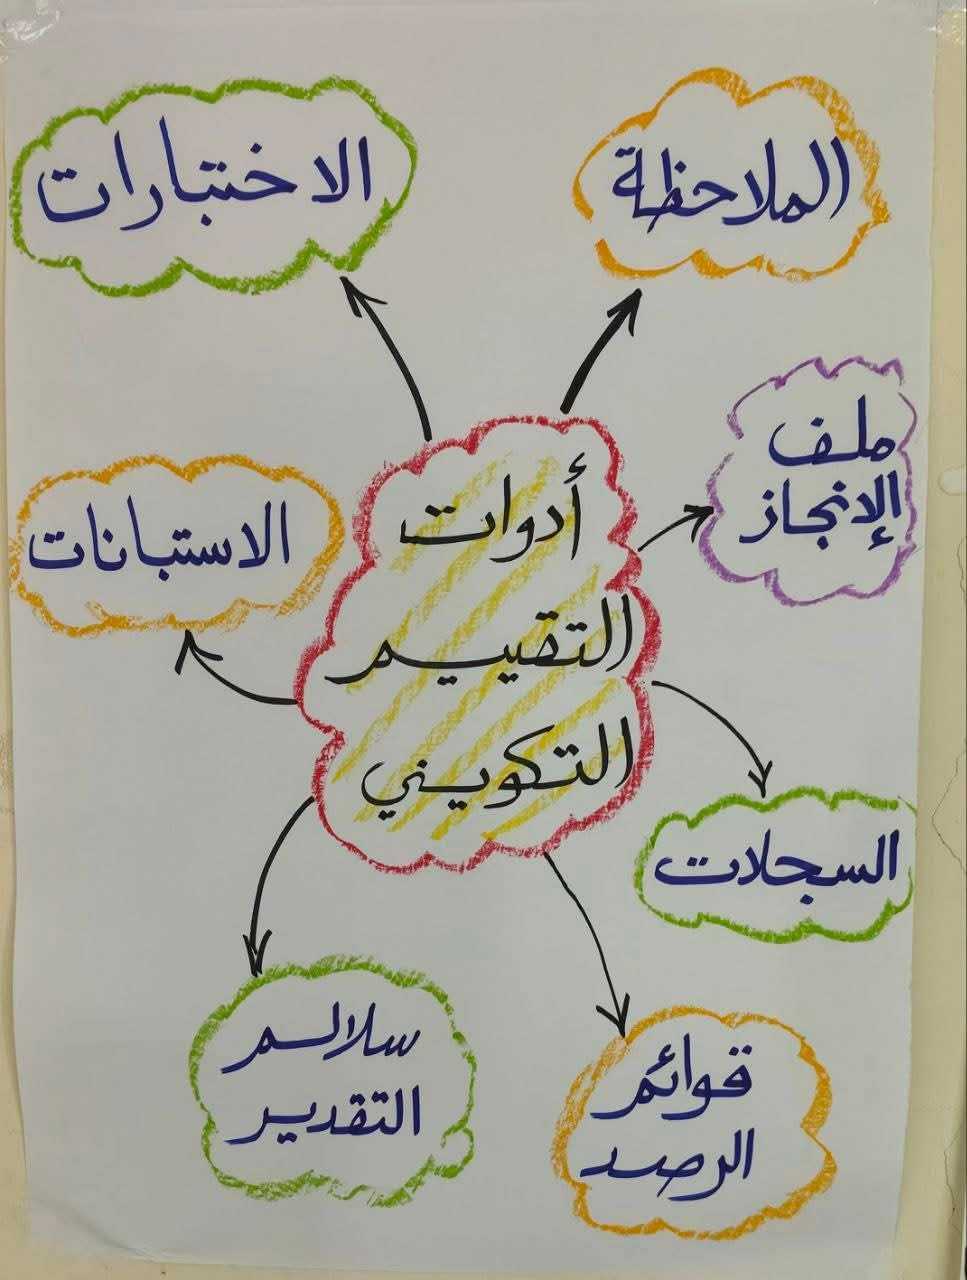 الملاحظة
الاختبارات
ملف
الإنجاز
أدوات
التقييم
التكويني
الاستبانات
السجلات
سلالم
التقدير
قوائم
الرصد